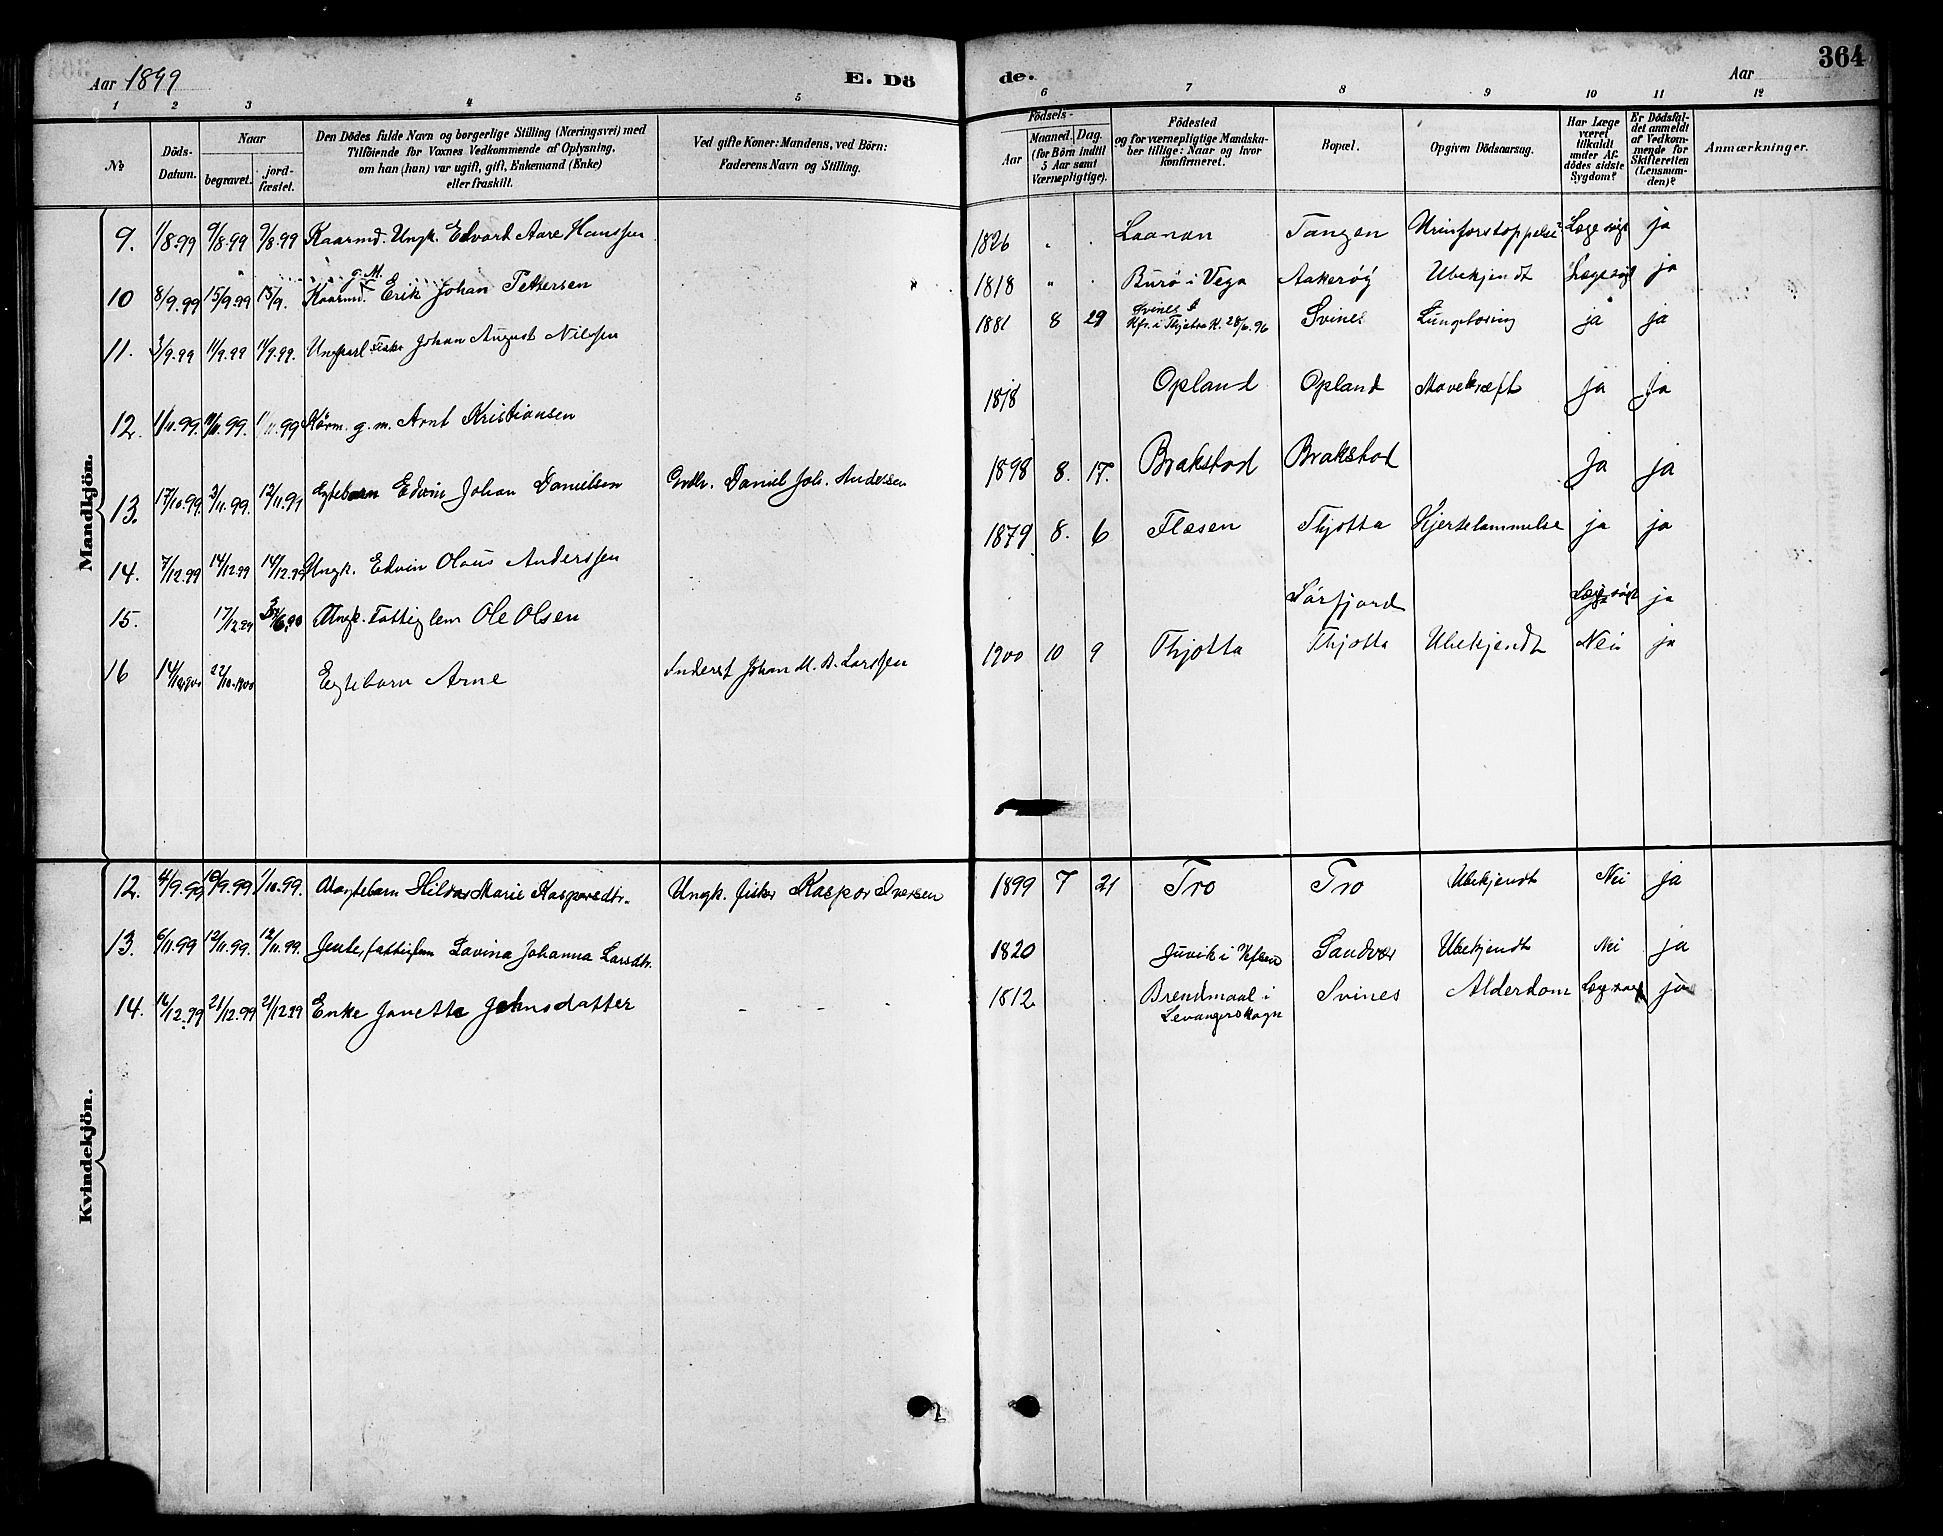 Aar 1899
E. Dö
de.
Aar
364
1 2 3 4 5 6 7 8 9 10 11 12
№
Döds-Datum.
Naar
begravet.
jord-fæstet.
Den Dödes fulde Navn og borgerlige Stilling (Næringsvei) med
Tilföiende for Voxnes Vedkommende af Oplysning,
om han (hun) var ugift, gift, Enkemand (Enke)
eller fraskilt.
Ved gifte Koner: Mandens, ved Börn:
Faderens Navn og Stilling.
Födsels-
Aar
Maaned. Dag.
(for Börn indtil
5 Aar samt
Værnepligtige).
Födested
og for værnepligtige Mandska-
ber tillige: Naar og hvor
konfirmeret.
Bopæl.
Opgiven Dödsaarsag.
Har Læge
været
tilkaldt
under Af-
dödes sidste
Sygdom?
Er Dödsfal-
det anmeldt
af Vedkom-
mende for
Skifteretten
(Lensman-
den)?
Anmærkninger.
Mandkjön.
9. 1/8.99 9/8.99 9/8.99 Kaarmd. Ungk. Edvart Aare Hanssen 1826 Laanan Tangen Urinforstoppelse Læge søgt ja
10 8/9.99 15/9.99 15/9. Kaarmd. g.M. Erik Johan Pettersen 1818 Burø i Vega Aakerøy Ubekjendt Læge søgt ja
11. 3/9.99 11/9.99 11/9.99. Ungkarl Fisker Johan August Nilssen 1881 8 29 Svines Kfr. i Thjøtta K. 28/6.96 Svines Lungetæring ja ja
12. 1/11.99. 11/11.99. 11.99 Kårm. g.m. Arnt Kristiansen 1818 Opland Opland Mavekræft ja ja
13. 17/10.99. 3/11.99. 12/11.99 Egtebarn Edvin Johan Danielsen Grdbr. Daniel Joh. Andersen 1898 8. 17. Brakstad Brakstad ja ja
14. 7/12.99 14/12.99 14/12.99 Ungk. Edvin Olaus Anderssen 1879 8. 6 Flæsen Thjøtta Hjertelammelse ja ja
15. 17/12.99 Ungk. Fattiglem Ole Olsen Sørfjord Læge søgt ja
16 14/10.1900 22/10.1900 Egtebarn Arne Inderst Johan M. B. Larssen 1900 10 9 Thjøtta Thjøtta Ubekjendt Nei ja
Kvindekjön.
12. 4/9.99 10/9.99. 1/10.99. Uægtebarn Hilda Marie Kaspersdtr. Ungk. fisker Kasper Iversen 1899 7 21 Tro Tro Ubekjendt Nei ja
13. 6/11.99 12/11.99. 12/11.99. Jente, fattiglem Lavina Johanna Larsdtr. 1820 Juvik i Vefsen Sandvær Ubekjendt Nei ja
14. 16/12.99 21/12.99 21/12.99 Enke Janetta Johnsdatter - - 1812 Brendmaal i Levangerskogn Svines Alderdom Læge søgt ja